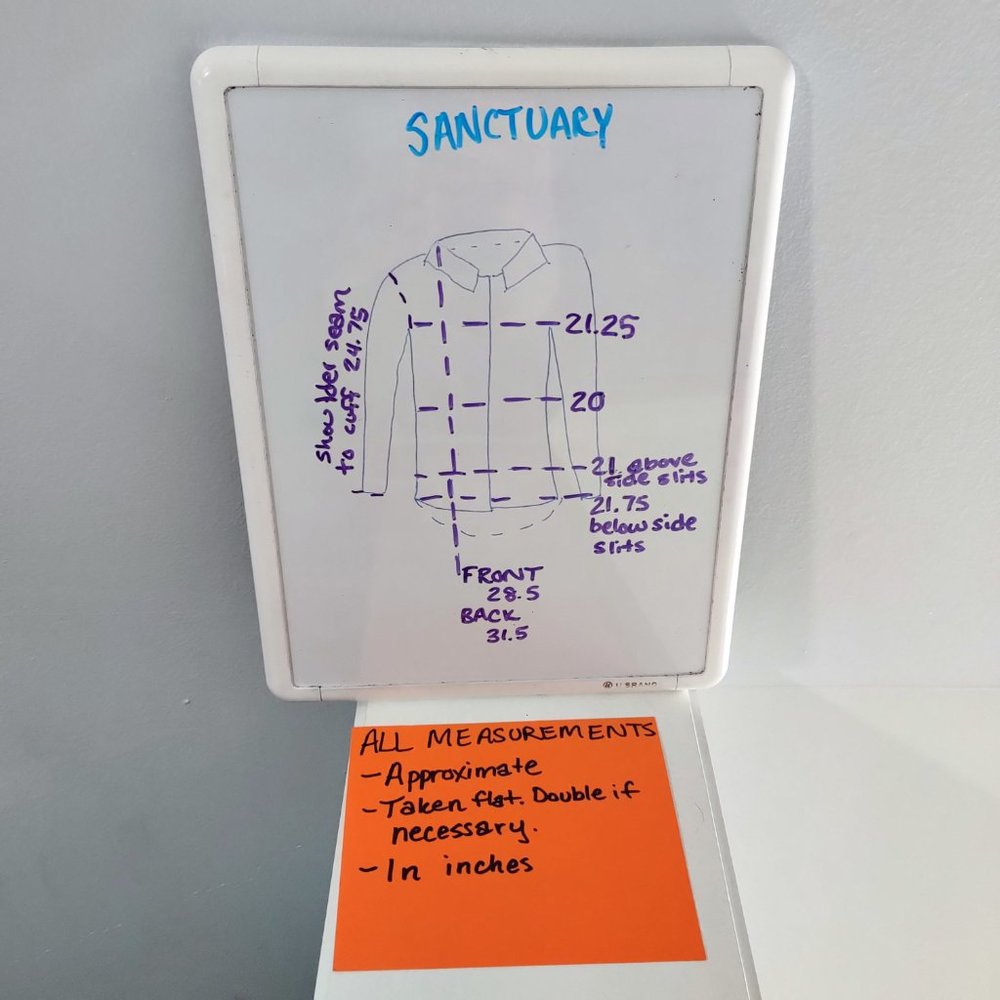 SANCTUARY
shoulder seam
to cuff 24.75
21.25
20
21 above
side slits
21.75
below side
slits
FRONT
28.5
BACK
31.5
U BRAND
ALL MEASUREMENTS
-Approximate
-Taken flat. Double if
necessary.
-In inches